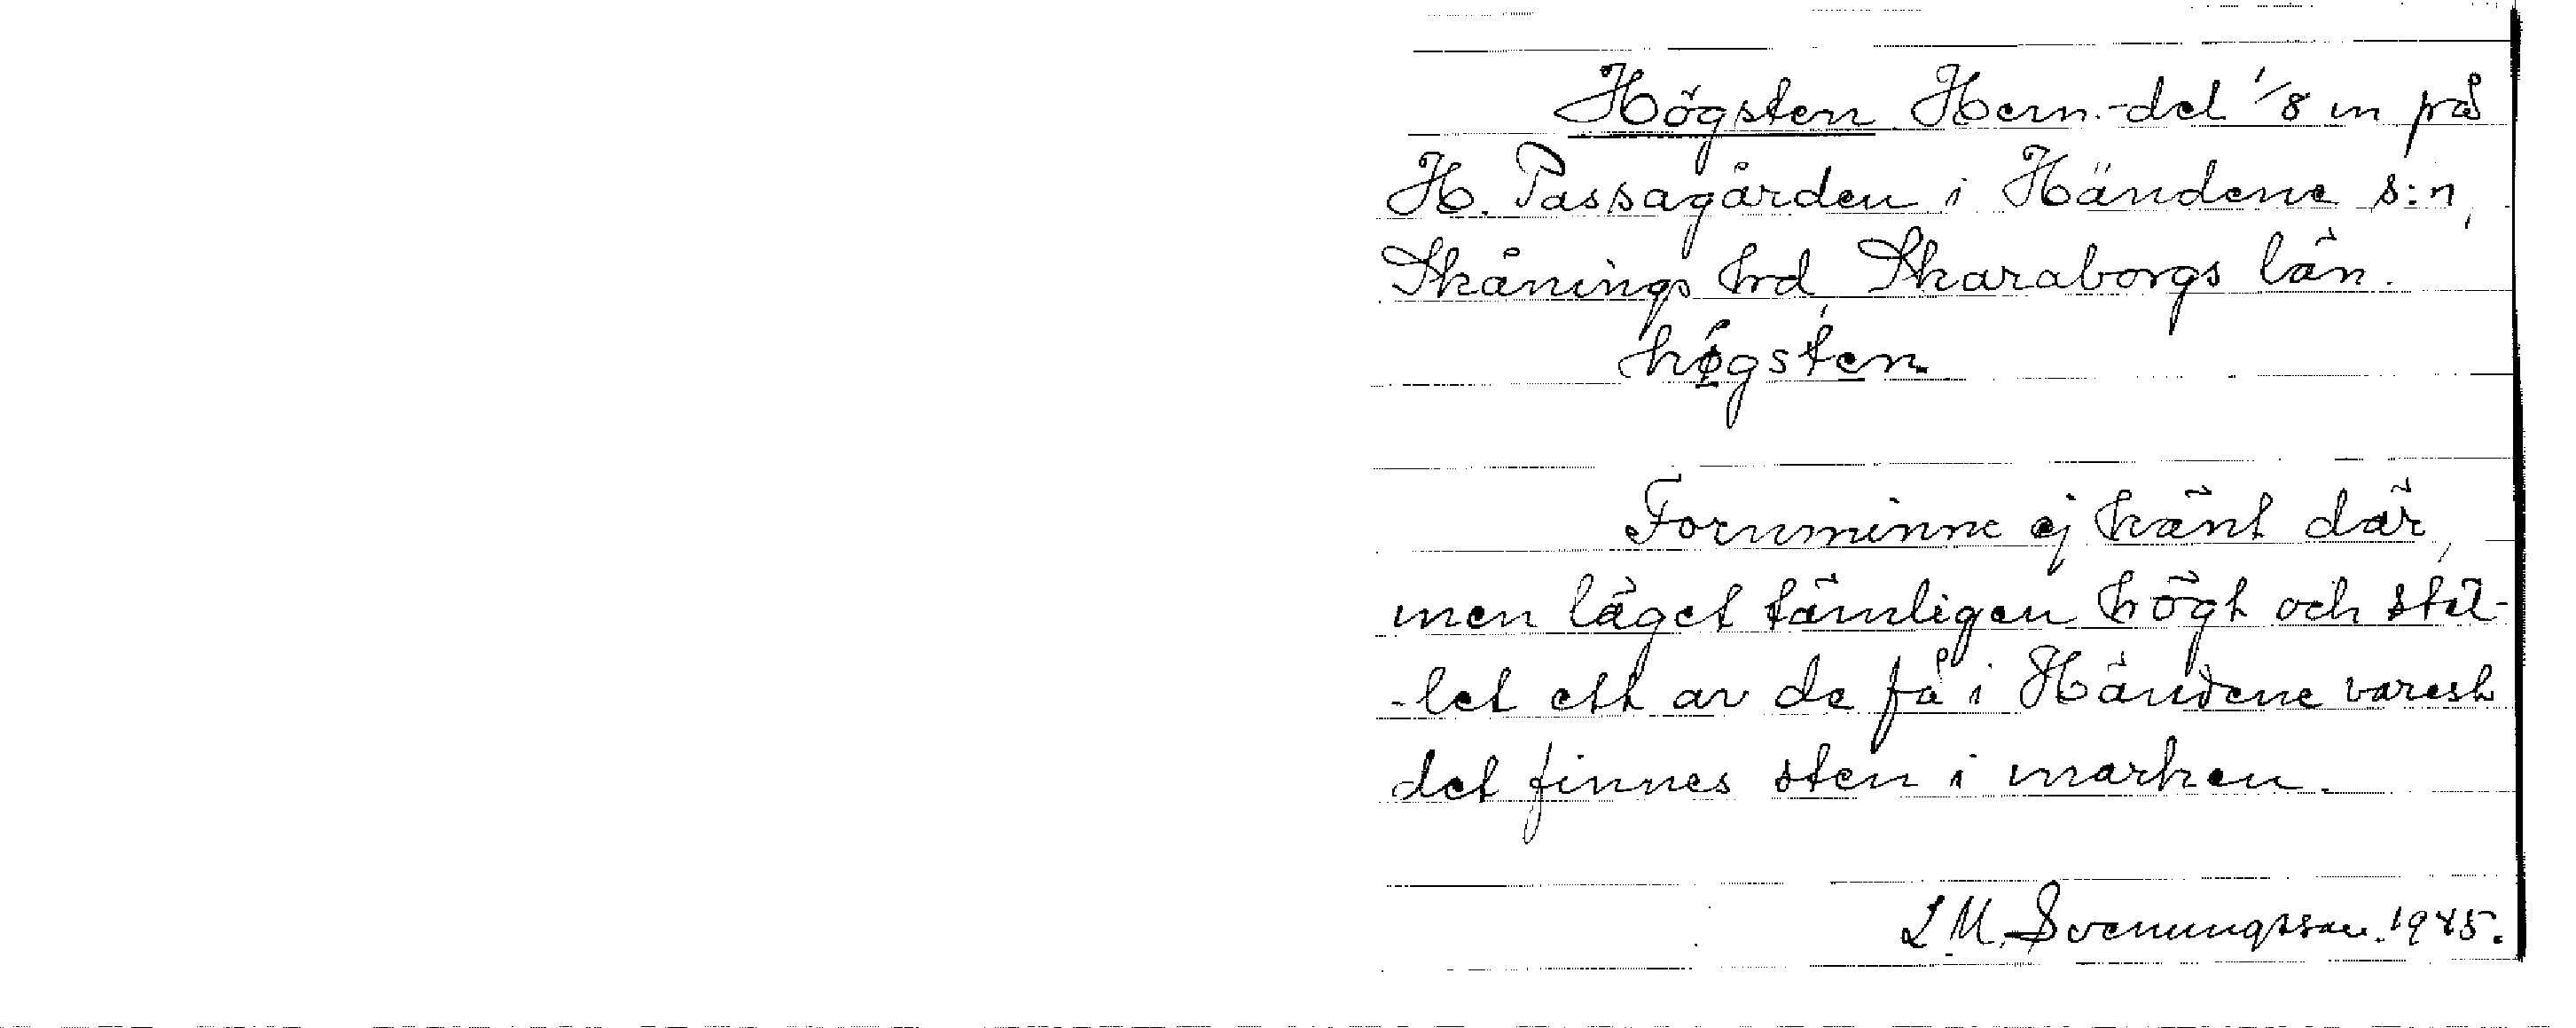 Högsten Hem.-del 1/8 m på
H. Passagården i Händene s:n,
Skånings hrd, Skaraborgs län.
högsten.
Fornminne ej känt där,
men läget tämligen högt och stäl-
-let ett av de få i Händene varest
det finnes sten i marken.
L M. Svenungsson. 1945.